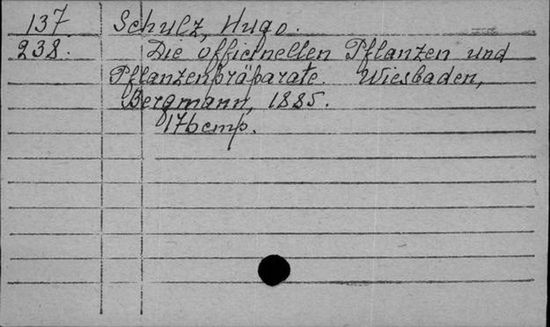 137 Schulz, Hugo.
238. Die officinellen Pflanzen und
Pflanzenpräparate. Wiesbaden,
Bergmann, 1885.
176cmp.